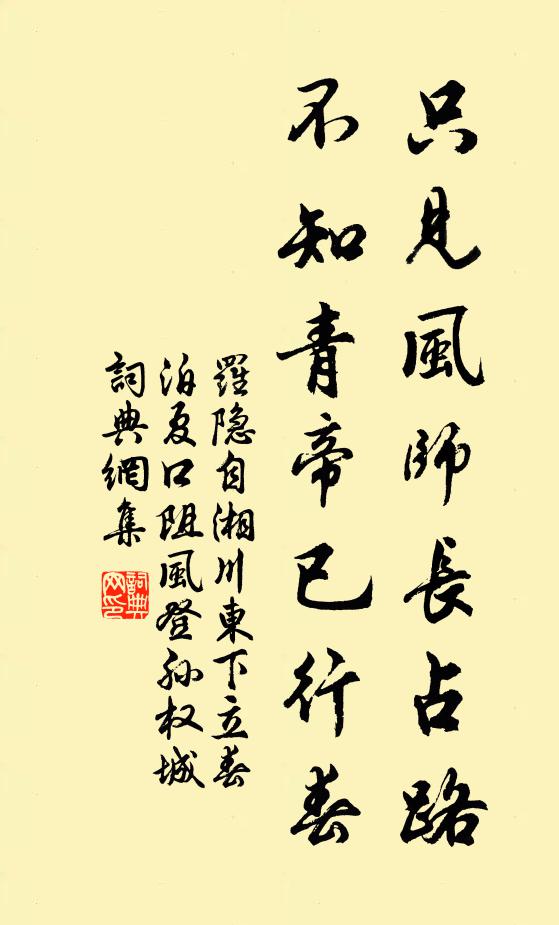 只見風師長占路
不知青帝已行春
羅隐自湘川東下立春
泊夏口阻風登孙权城
詞典網集
詞典網印